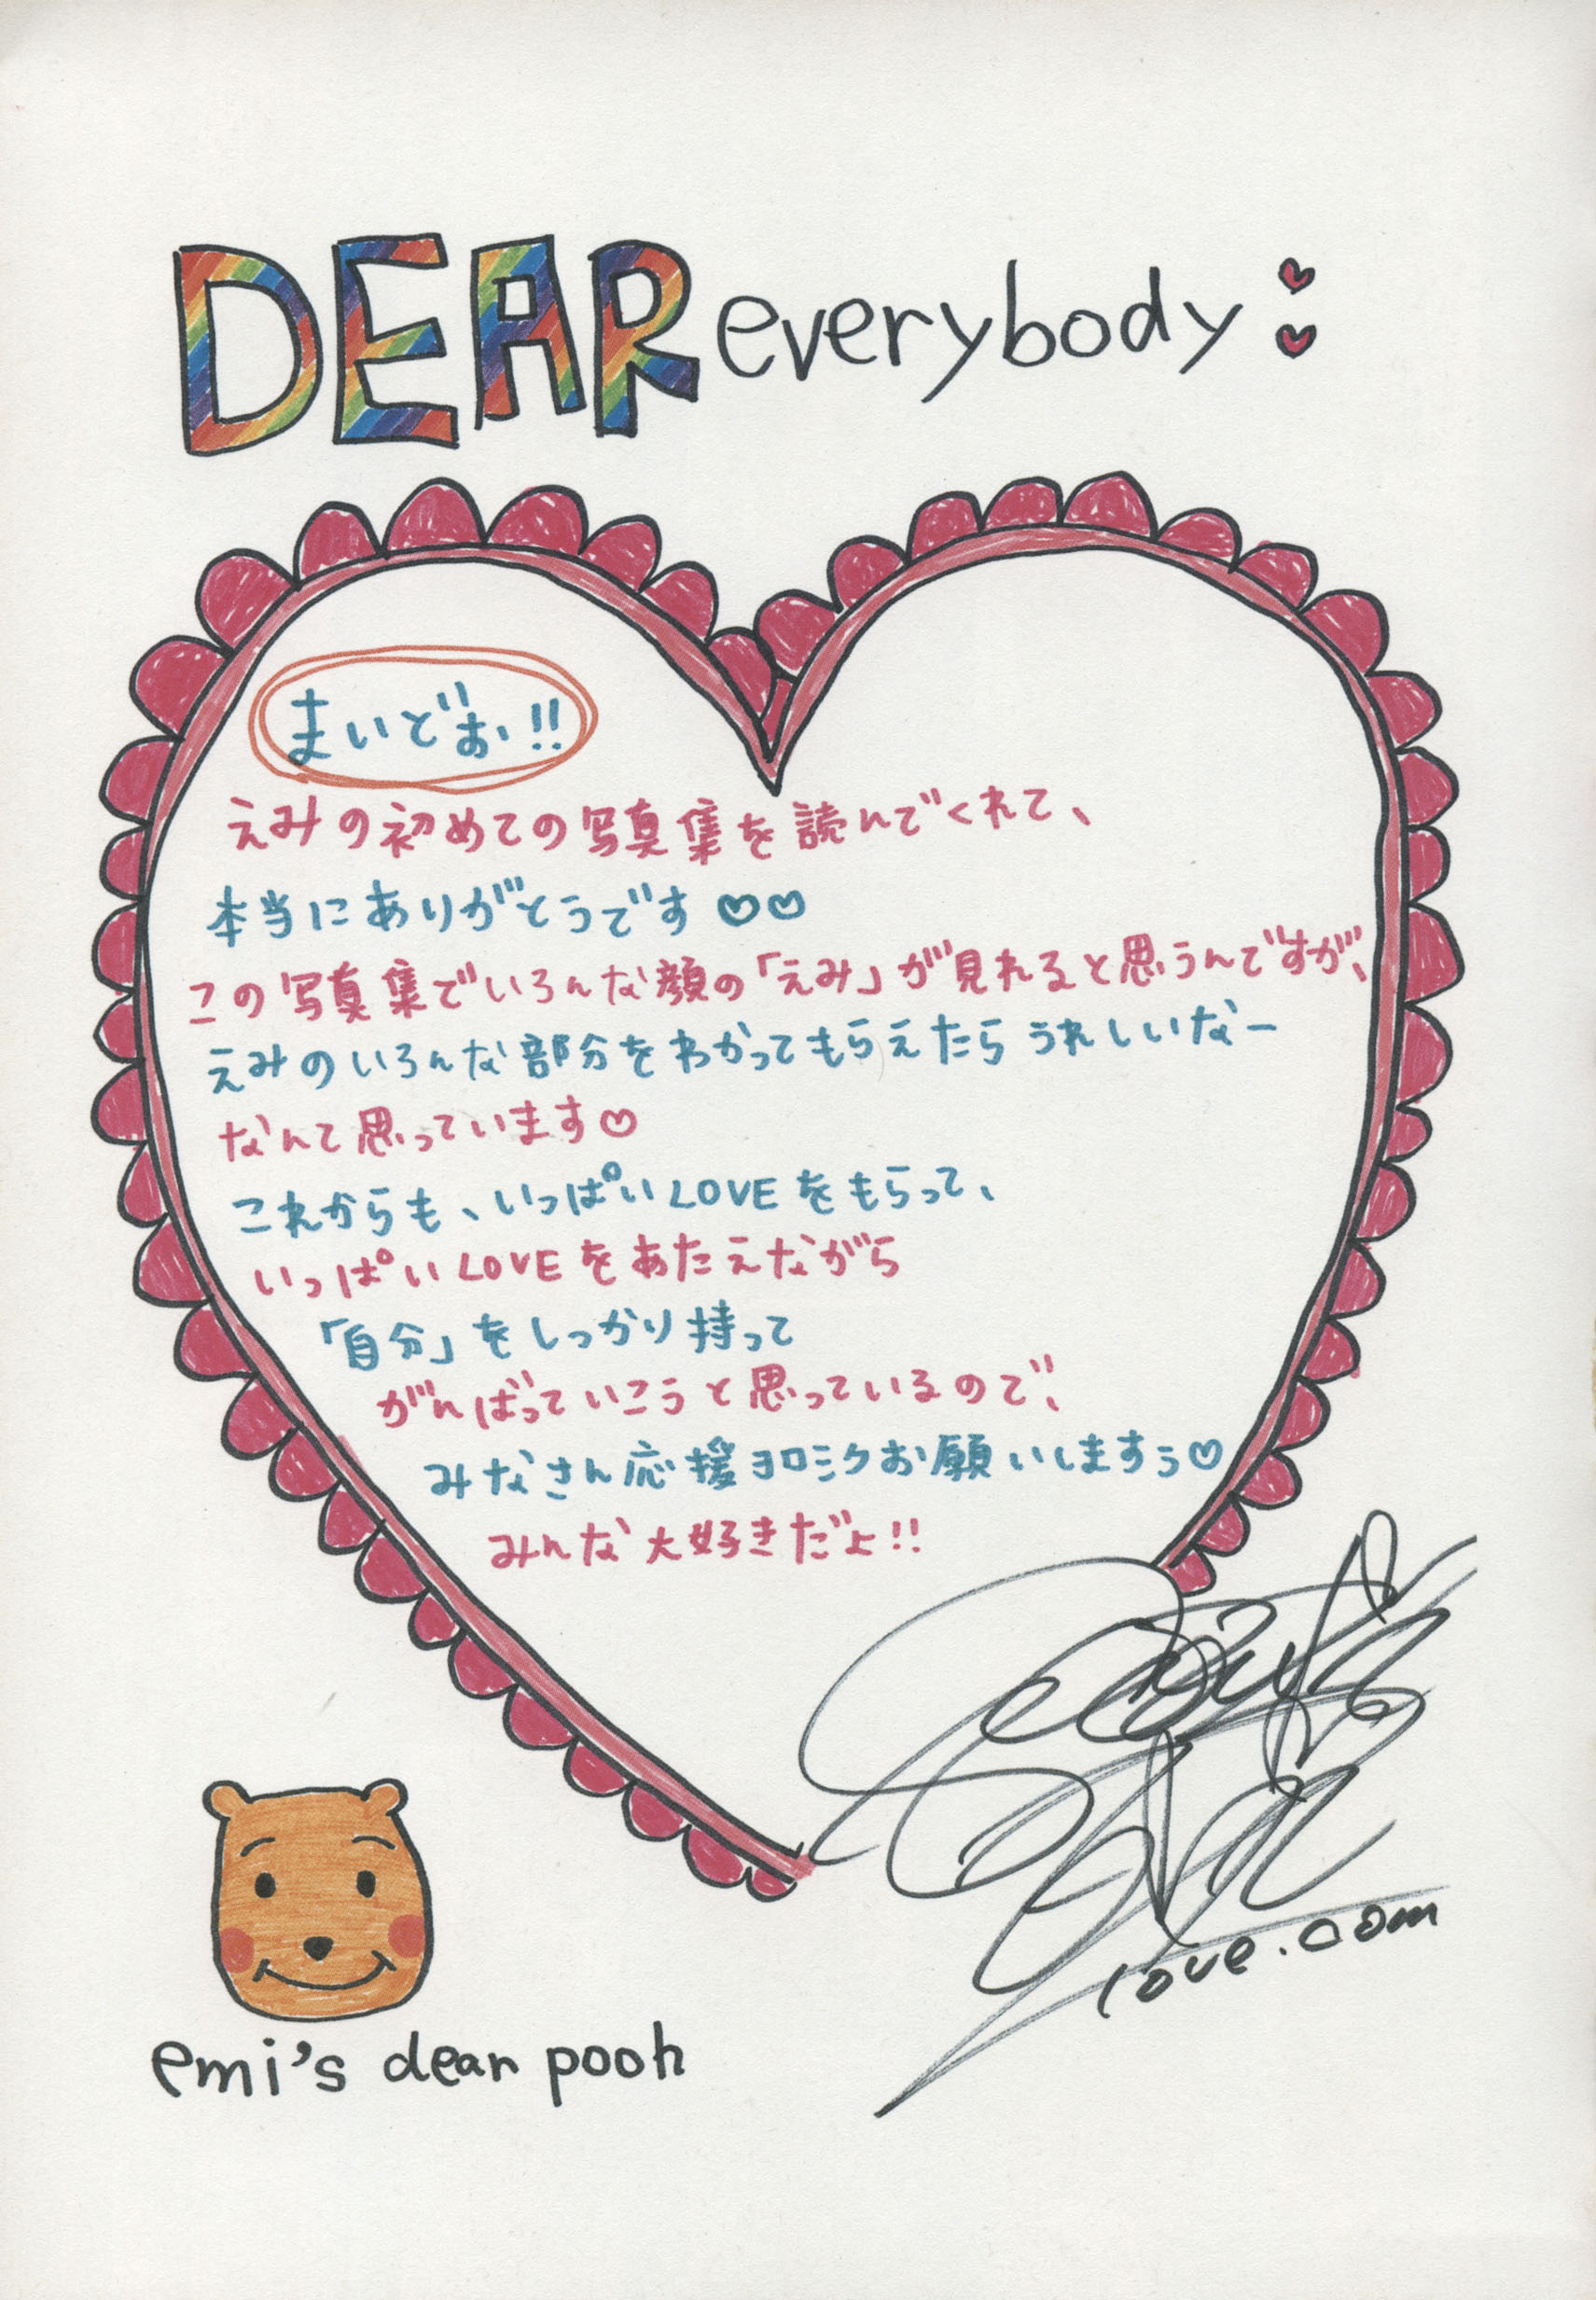 DEAR everybody
まいどぉ!!
えみの初めての写真集を読んでくれて、
本当にありがとうです♡♡
この写真集でいろんな顔の「えみ」が見れると思うんですが、
えみのいろんな部分をわかってもらえたらうれしいなー
なんて思っています♡
これからも、いっぱいLOVEをもらって、
いっぱいLOVEをあたえながら
「自分」をしっかり持って
がんばっていこうと思っているので、
みなさん応援ヨロシクお願いしますぅ♡
みんな大好きだよ!!
love.com
emi's dear pooh